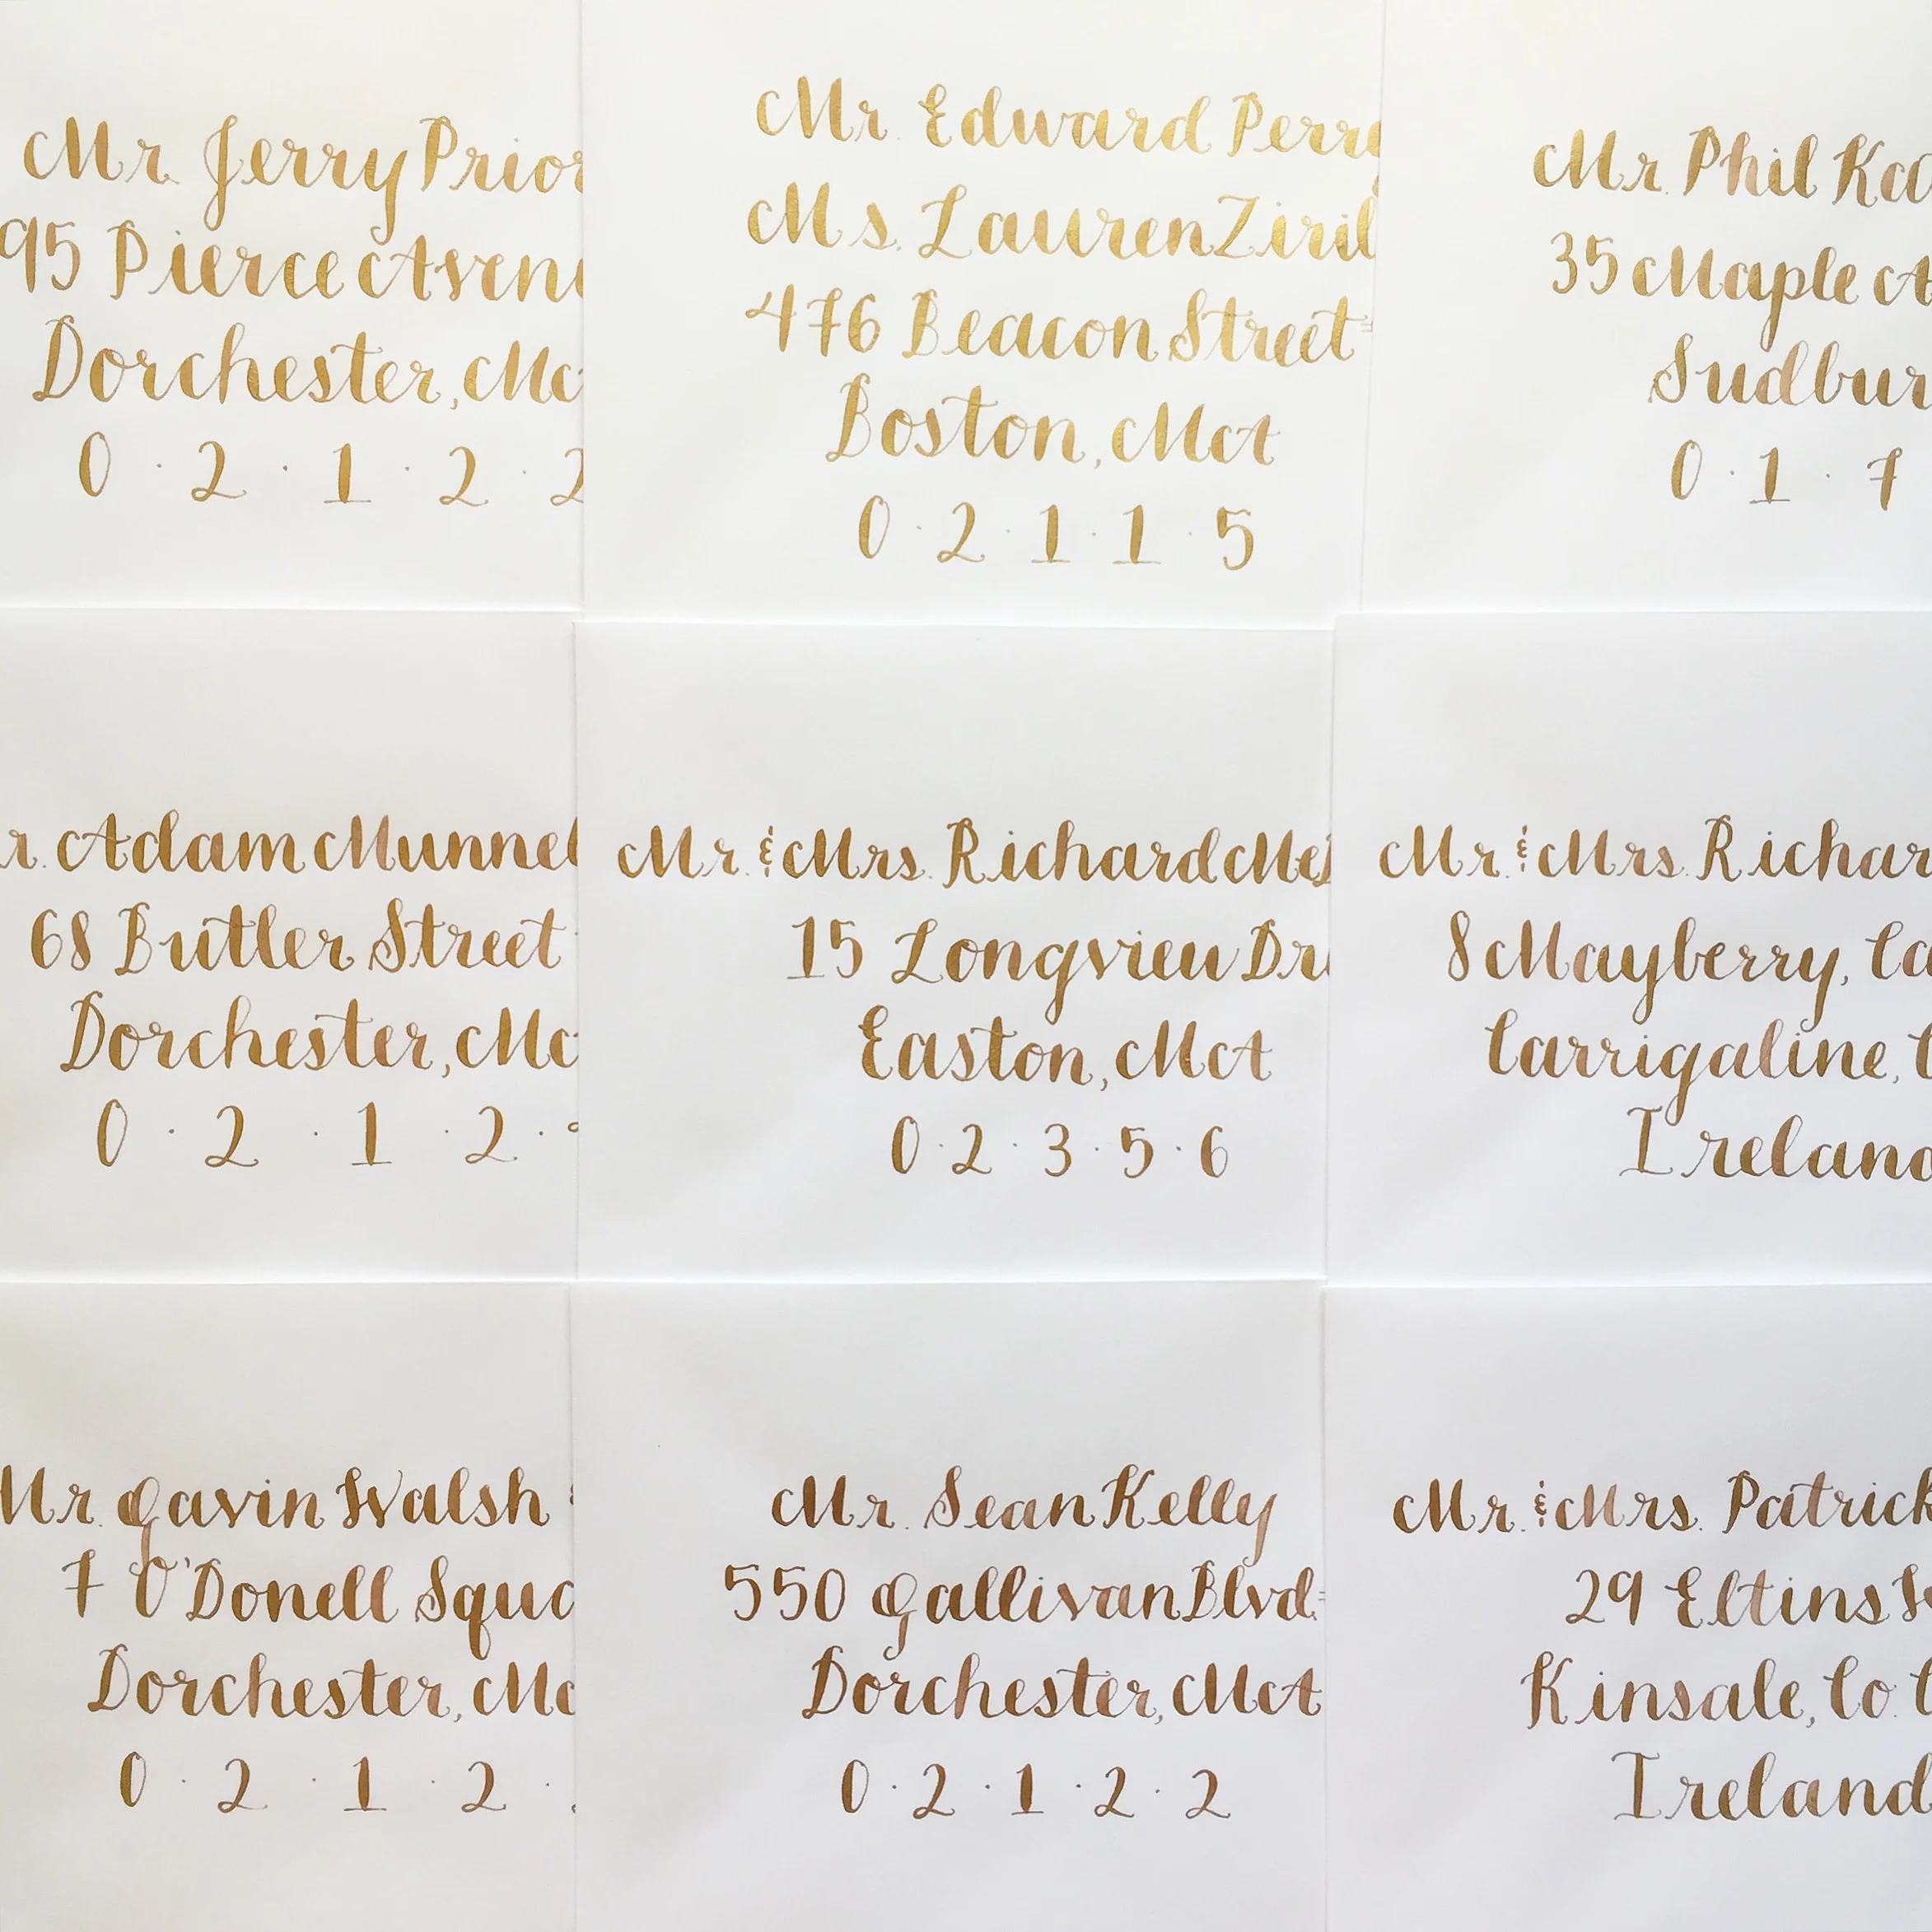 Mr. Jerry Prior
95 Pierce Avenu
Dorchester, MA
0 · 2 · 1 · 2 · 2
Mr. Edward Perry
Ms. Lauren Ziril
476 Beacon Street
Boston, MA
0 · 2 · 1 · 1 · 5
Mr. Phil
35 Maple A
Sudbur
0 · 1 · 7
r. Adam Munnel
68 Butler Street
Dorchester, MA
0 · 2 · 1 · 2 ·
Mr. & Mrs. Richard
15 Longview Dri
Easton, MA
0 · 2 · 3 · 5 · 6
Mr. & Mrs. Richar
8 Mayberry, Ca
Carrigaline, C
Ireland
Mr. Gavin Walsh
7 O'Donell Squa
Dorchester, MA
0 · 2 · 1 · 2 ·
Mr. Sean Kelly
550 Gallivan Blvd.
Dorchester, MA
0 · 2 · 1 · 2 · 2
Mr. & Mrs. Patrick
29 Eltins
Kinsale, Co. C
Ireland